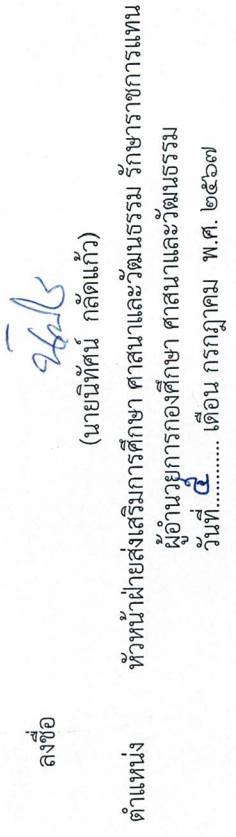 ลงชื่อ
(นายนิทัศน์ กลัดแก้ว)
ตำแหน่ง หัวหน้าฝ่ายส่งเสริมการศึกษา ศาสนาและวัฒนธรรม รักษาราชการแทน
ผู้อำนวยการกองศึกษา ศาสนาและวัฒนธรรม
วันที่............ เดือน กรกฎาคม พ.ศ. ๒๕๖๗